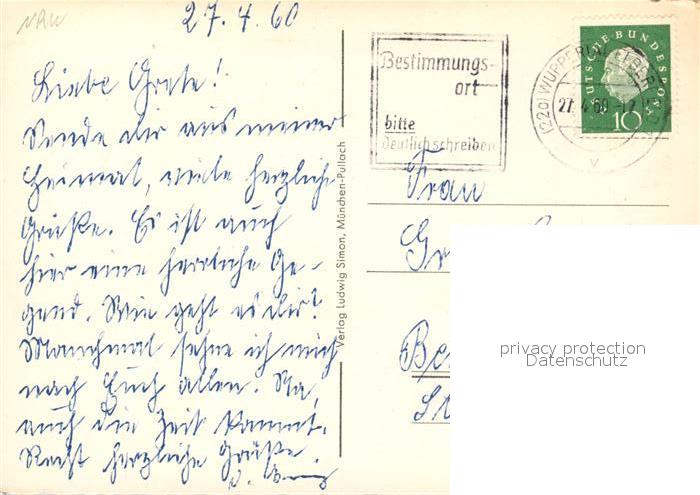 NRW
27.4.60
Liebe Grete!
Sende dir aus meiner
Heimat, viele herzliche
Grüße. Es ist auch
hier eine herrliche Ge-
gend. Wie geht es dir?
Manchmal sehne ich mich
nach Euch allen. Na,
auch die Zeit kommt.
Recht herzliche Grüße.
Verlag Ludwig Simon, München-Pullach
Bestimmungs-
ort
bitte
deutlich schreiben
(22a) WUPPERTAL-ELBERFELD
27.4.60
DEUTSCHE BUNDESPOST
10
Frau
Gr
Be
St
privacy protection
Datenschutz